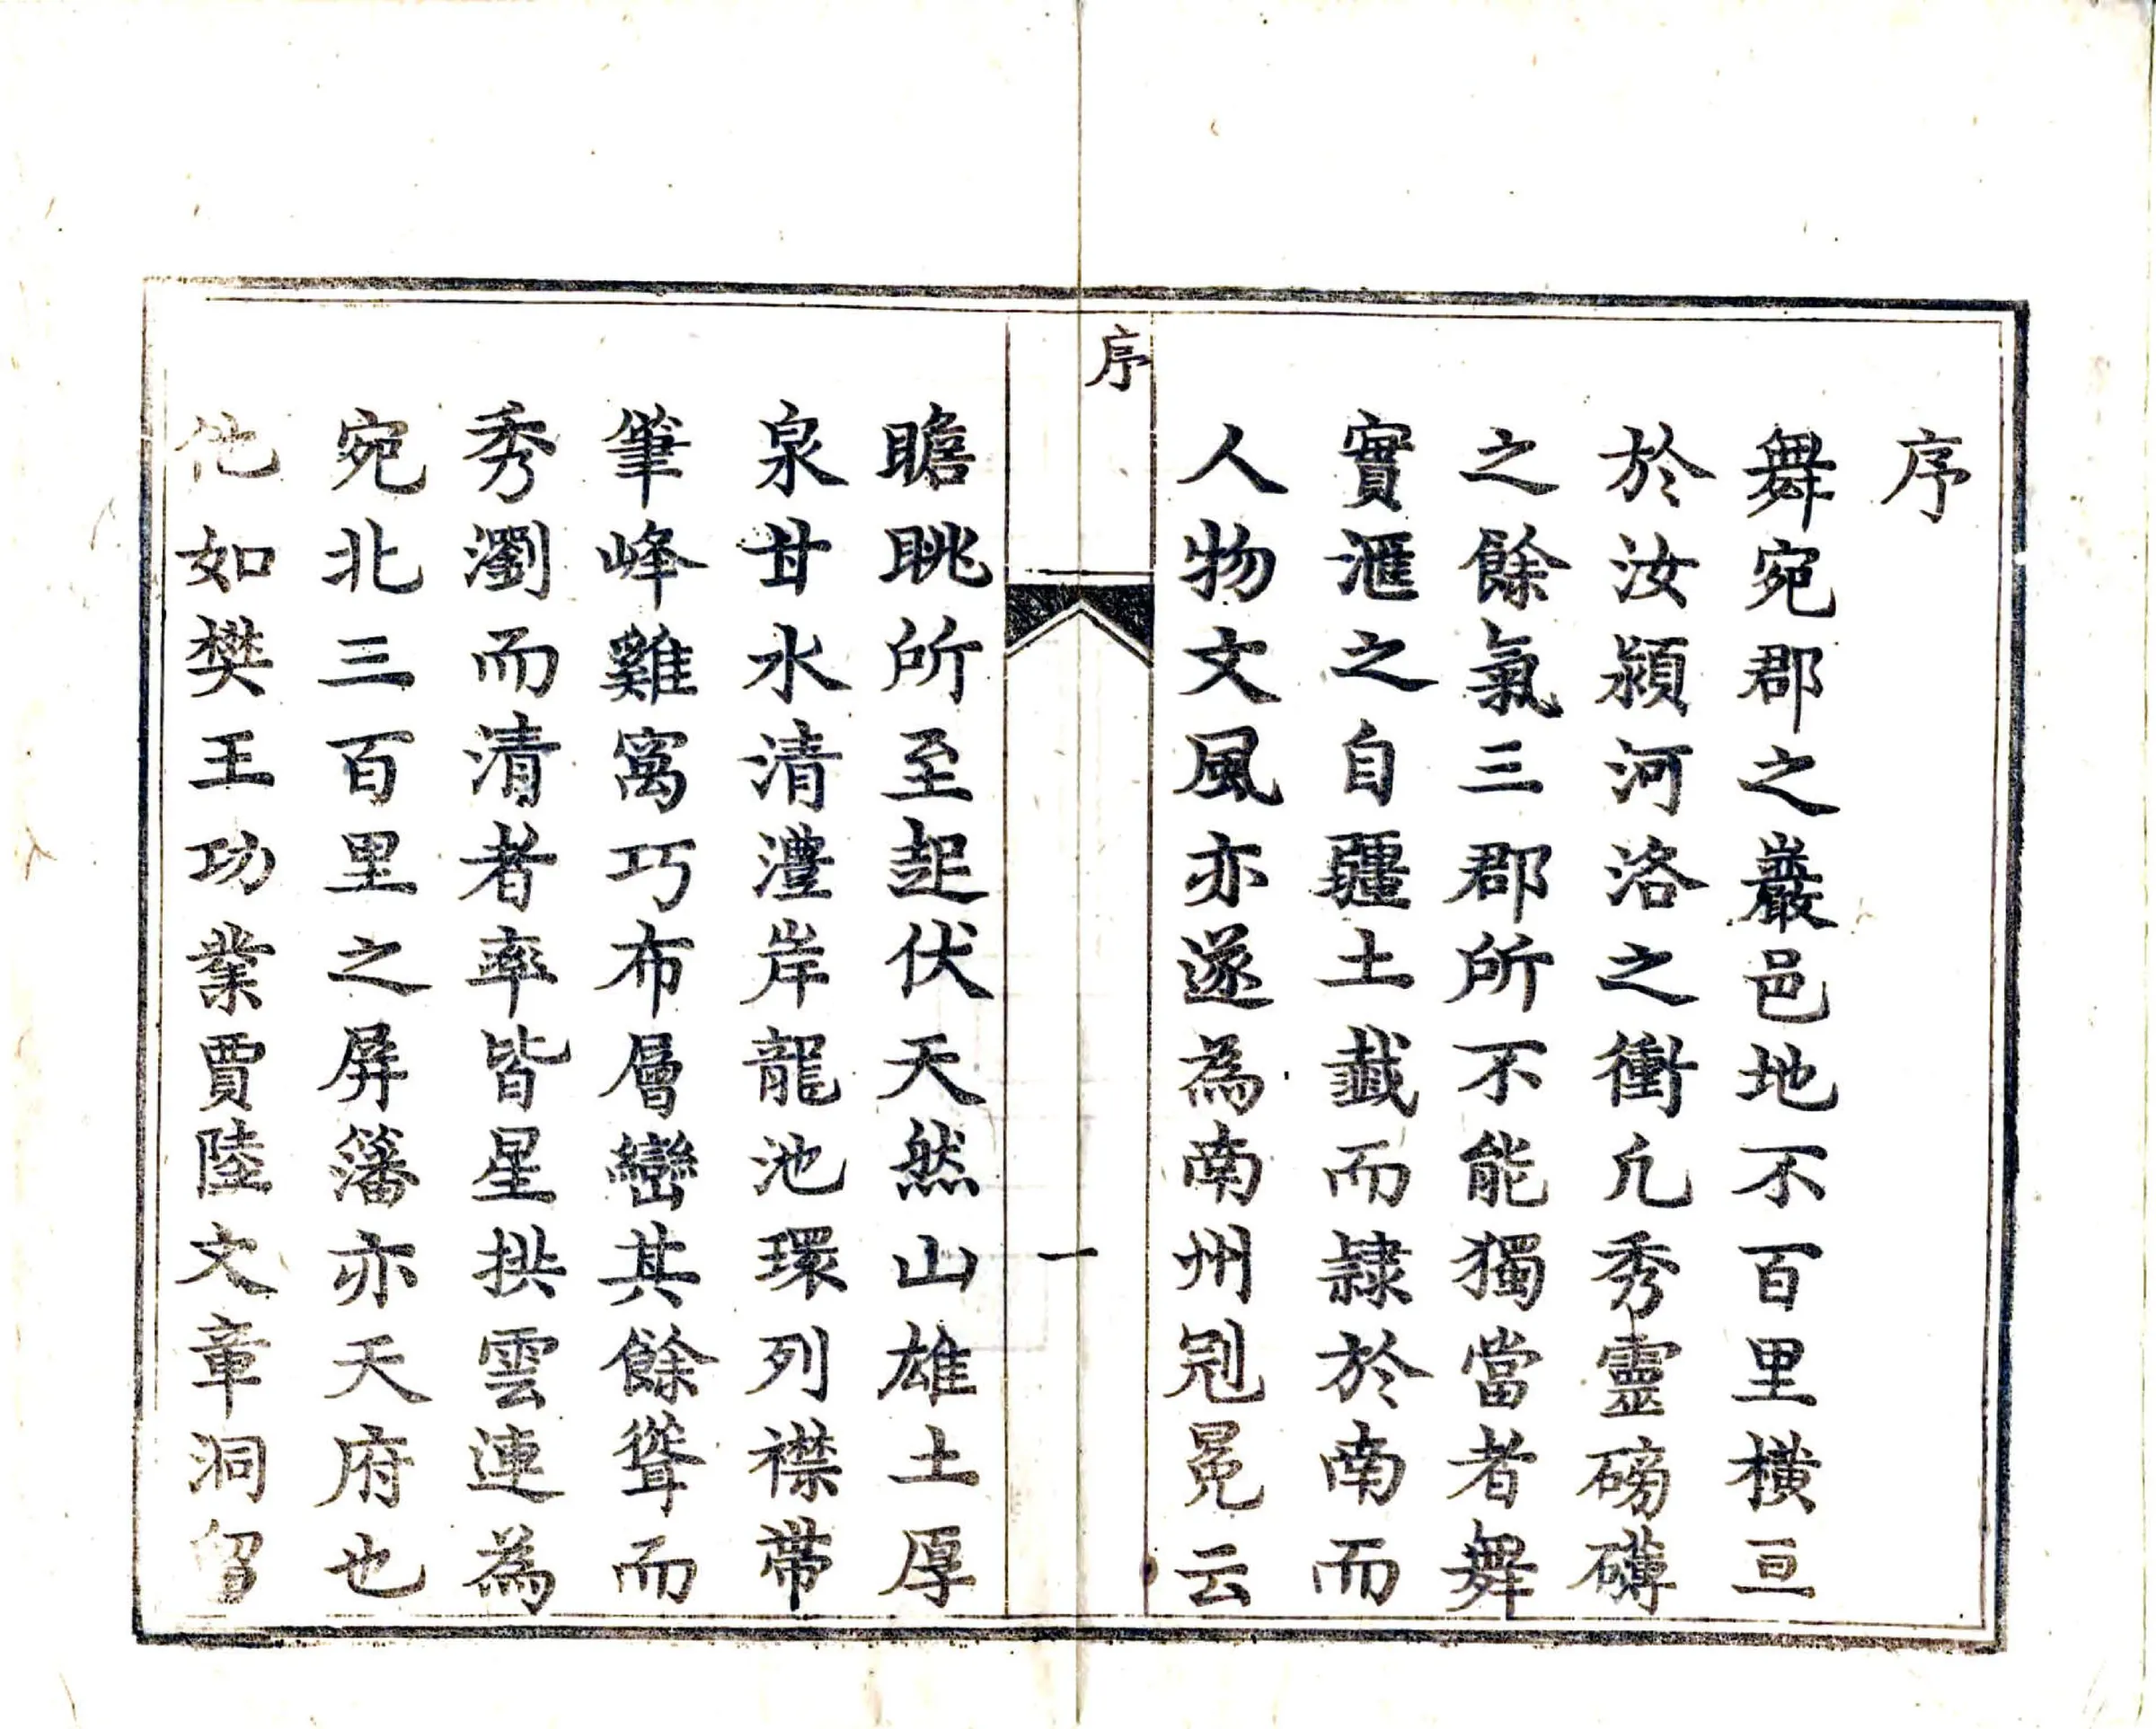 序
舞宛郡之巖邑地不百里橫亘
於汝潁河洛之衝凡秀靈磅礴
之餘氣三郡所不能獨當者舞
實滙之自疆土韱而隷於南而
人物文風亦遂為南州冠冕云
序
一
瞻眺所至起伏天然山雄土厚
泉甘水清灃岸龍池環列襟帶
筆峰雞窩巧布層巒其餘聳而
秀瀏而清者率皆星拱雲連為
宛北三百里之屏籓亦天府也
他如樊王功業賈陸文章洞